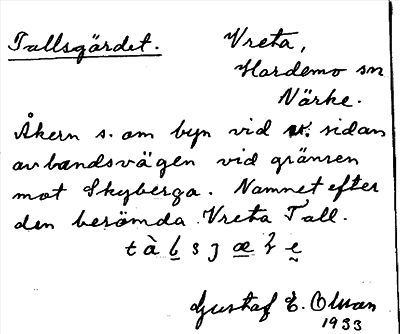 Tallsgärdet.
Vreta,
Hardemo sn
Närke.
Åkern s. om byn vid v. sidan
av landsvägen vid gränsen
mot Skyberga. Namnet efter
den berömda Vreta Tall.
Gustaf E. Olsson
1933